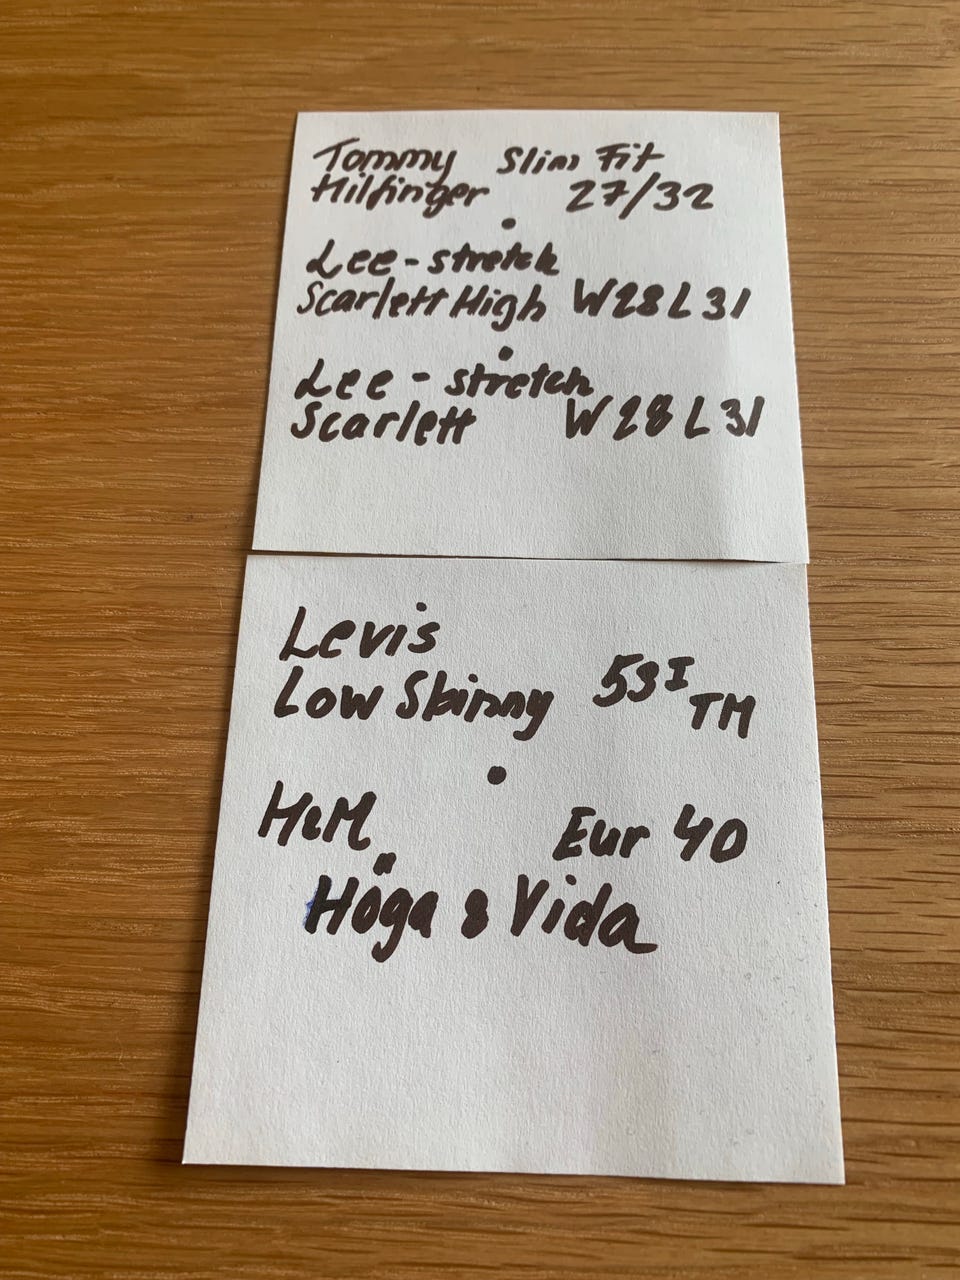 Tommy Slim Fit
Hilfinger 27/32
•
Lee - stretch
Scarlett High W28 L31
•
Lee - stretch
Scarlett W28 L31
Levis
Low Skinny 53I TM
•
H&M Eur 40
Höga & Vida